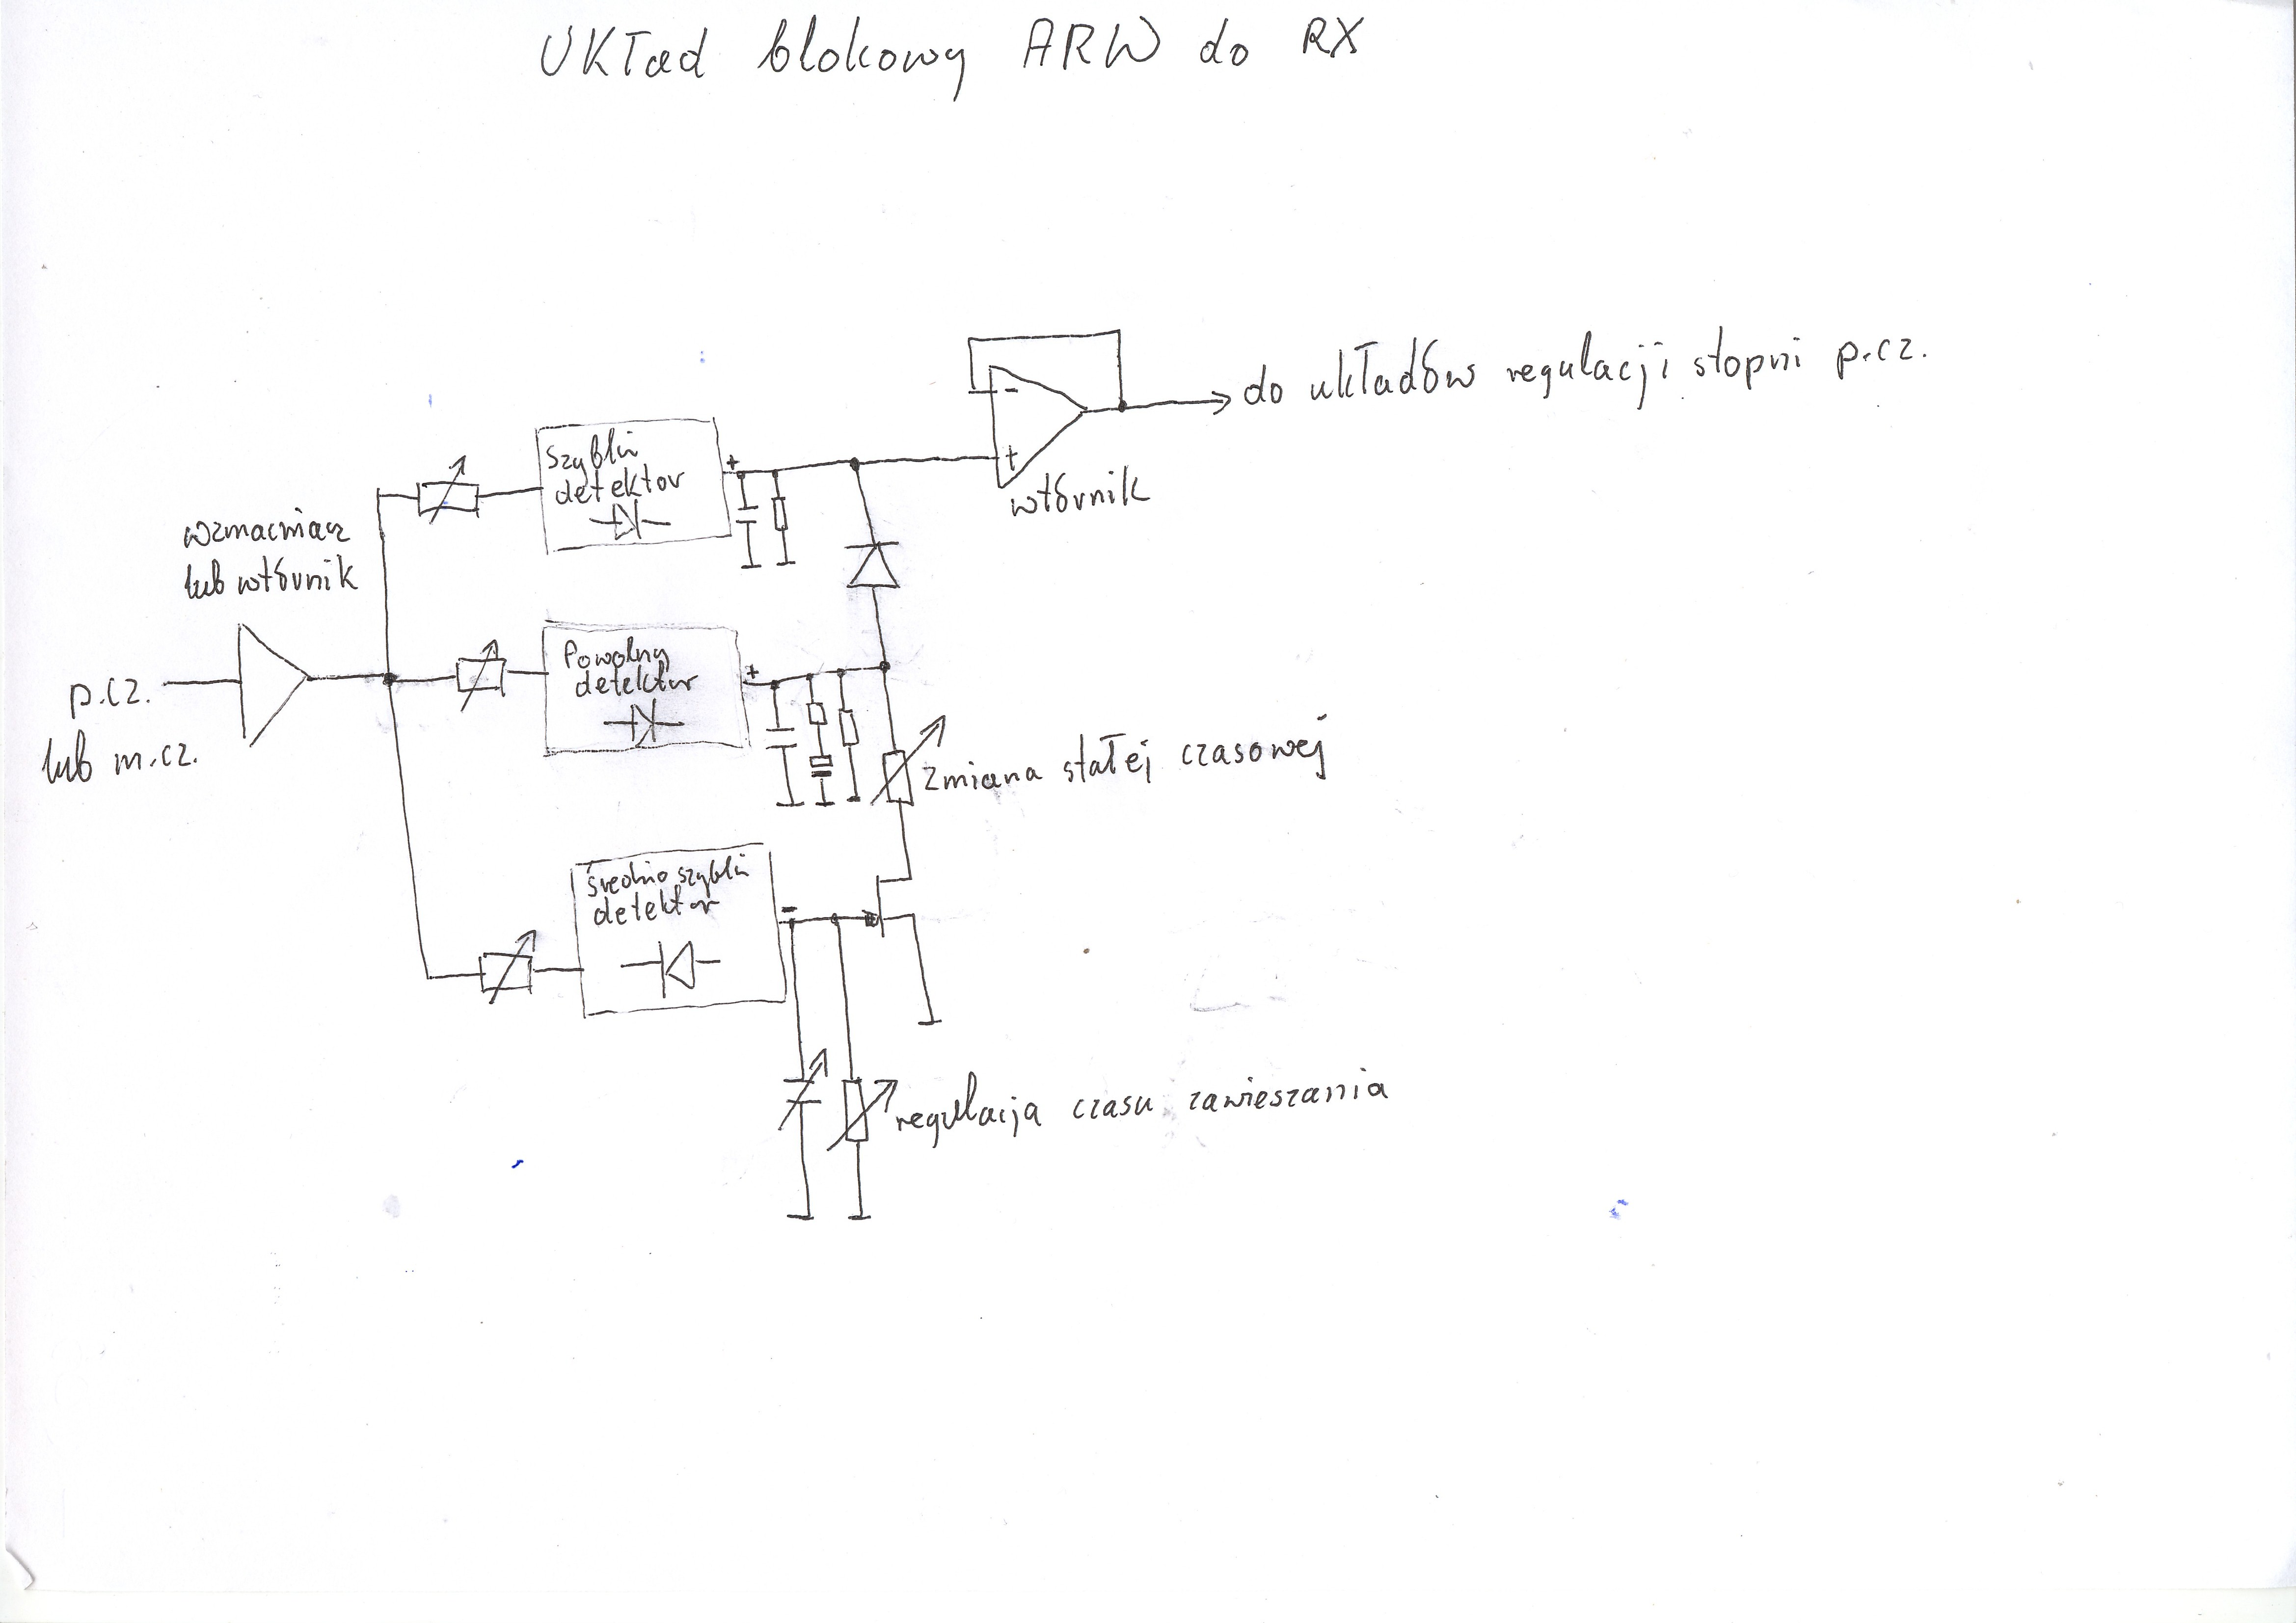 UKŁad blokowy ARW do RX
do układów regulacji stopni p.cz.
-
+
wtórnik
szybki
detektor
+
wzmacniacz
lub wtórnik
p.cz.
lub m.cz.
Powolny
detektor
+
zmiana stałej czasowej
średnio szybki
detektor
-
regulacja czasu zawieszania